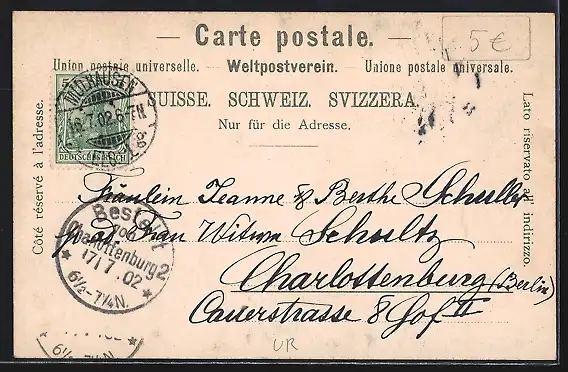 — Carte postale. —
5 €
Union postale universelle. — Weltpostverein. — Unione postale universale.
SUISSE. SCHWEIZ. SVIZZERA.
Nur für die Adresse.
Côté réservé à l'adresse.
Lato riservato all' indirizzo.
5
MÜLHAUSEN
16.7.02.6-7N
DEUTSCHES REICH
Fräulein Jeanne & Berthe Schuller
Frau Witwe Schultz
Charlottenburg (Berlin)
Cauerstrasse 8 Hof II
Bestellt
vom
Charlottenburg 2
17/7.02
★ 6½-7¼N. ★
6½-7¼N.
UR